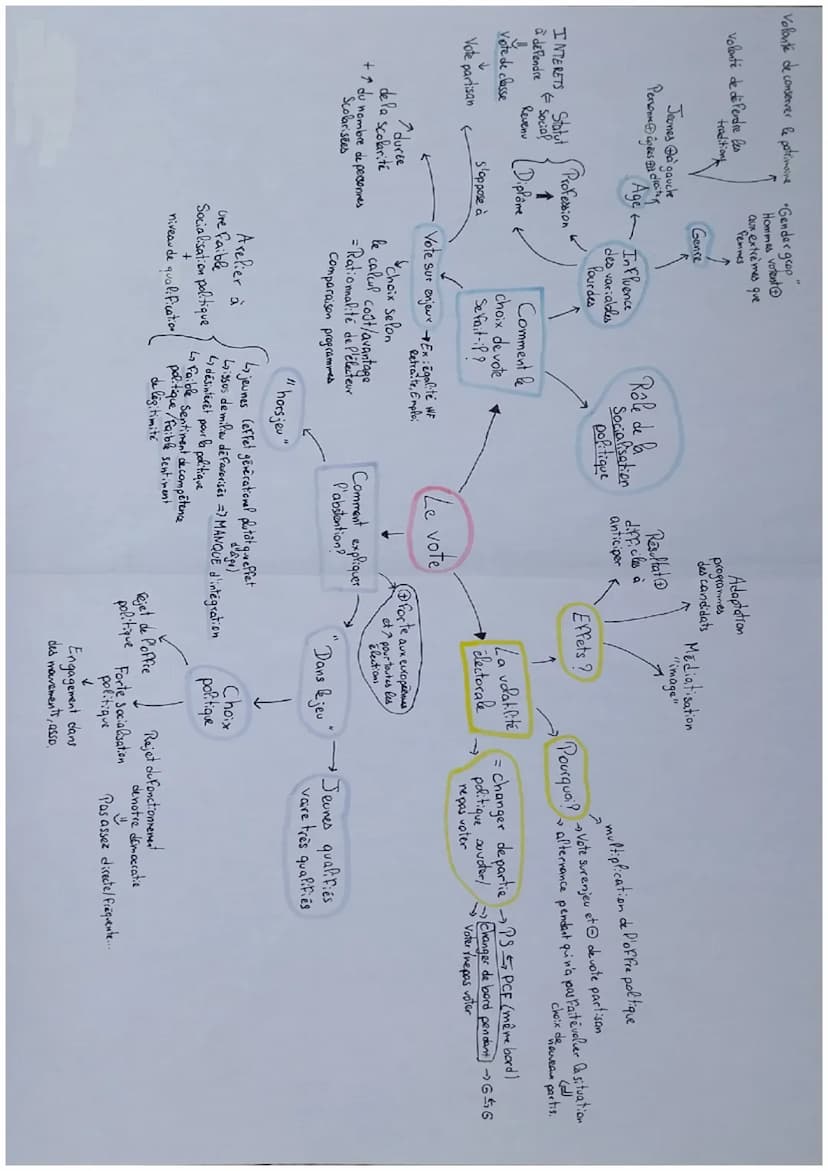 Le vote
Comment le
choix de vote
se fait-il ?
Rôle de la
Socialisation
politique
Influence
des variables
lourdes
Genre
"Gender gap"
Hommes votent ⊕
aux extrêmes que
femmes
Age
Jeunes ⊕ à gauche
Personnes ⊕ âgées ⊕ à droite
Volonté de défendre les
traditions
Volonté de conserver le patrimoine
Profession
Diplôme
Statut
Social
Revenu
INTERETS
à défendre
Vote de classe
Vote partisan
s'oppose à
Vote sur enjeux
→ Ex : égalité HF
Retraite, Emploi
Choix selon
le calcul coût/avantage
= Rationnalité de l'électeur
comparaison programmes
↗ durée
de la scolarité
+ ↗ du nombre de personnes
Scolarisées
La volatilité
électorale
= changer de partie
politique ou voter/
ne pas voter
→ PS ⇆ PCF (même bord)
→ Changer de bord pendant → G ⇆
→ Voter/ne pas voter
Pourquoi ?
multiplication de l'offre politique
→ Vote sur enjeu et ⊖ de vote partisan
→ alternance pendant qui n'a pas fait évoluer la situation
choix de
nouveaux partis.
Effets ?
Résultat ⊕
difficiles à
anticiper
Adaptation
programmes
des candidats
Médiatisation
"image"
Comment expliquer
l'abstention ?
⊕ forte aux européennes
et ↗ pour toutes les
élections
"hors jeu"
↳ jeunes (effet générationel plutôt que effet
d'âge)
↳ issus de milieu défavorisés => MANQUE d'intégration
↳ désintérêt pour la politique
↳ Faible sentiment de compétence
politique / Faible sentiment
de légitimité
à
une faible
Socialisation politique
+
niveau de qualification
"Dans le jeu"
Jeunes qualifiés
voire très qualifiés
Choix
politique
rejet de l'offre
politique
Forte socialisation
politique
Engagement dans
des mouvements, asso.
Rejet du fonctionnement
de notre démocratie
Pas assez directe/fréquente...